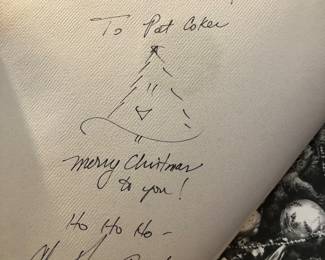 To Pat Coker
Merry Christmas
to you!
Ho Ho Ho -